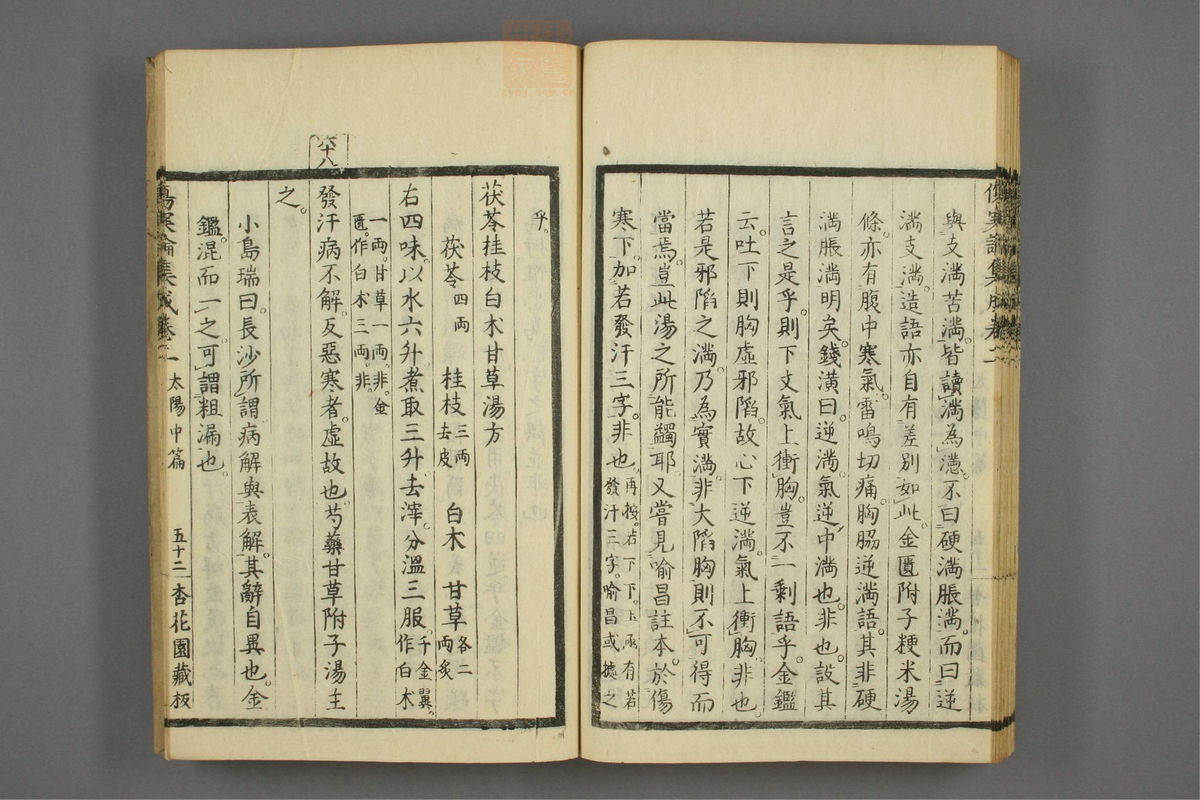 與支滿苦滿。皆讀滿為懣。不曰硬滿脹滿。而曰逆
滿支滿。造語亦自有差別如此。金匱附子粳米湯
條。亦有腹中寒氣。雷鳴切痛。胸脇逆滿語。其非硬
滿脹滿明矣。錢潢曰。逆滿。氣逆中滿也。非也。設其
言之是乎。則下文氣上衝胸。豈不一剩語乎。金鑑
云。吐下則胸虛邪陷。故心下逆滿。氣上衝胸。非也。
若是邪陷之滿。乃為實滿。非大陷胸則不可得而
當焉。豈此湯之所能蠲耶。又嘗見喻昌註本。於傷
寒下。加若發汗三字。非也。再按。若下下。玉函有若
發汗三字。喻昌或據之
乎。
茯苓桂枝白朮甘草湯方
茯苓四兩 桂枝三兩去皮 白朮 甘草各二兩炙
右四味。以水六升。煮取三升。去滓。分溫三服。千金翼。作白朮
一兩。甘草一兩。非。金
匱。作白朮三兩。非。
六十八
發汗病不解。反惡寒者。虛故也。芍藥甘草附子湯主
之。
小島瑞曰。長沙所謂病解與表解。其辭自異也。金
鑑。混而一之。可謂粗漏也。
傷寒論集成卷二 太陽中篇 五十二 杏花園藏板